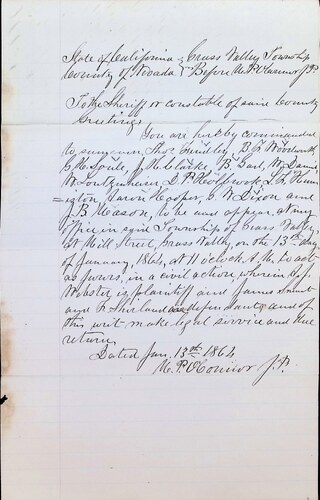 State of California } Grass Valley Township
County of Nevada } Before M. P. O'Connor J.P.
To the Sheriff or constable of said County
Greeting,
You are hereby commanded
to summon, Thos. Findley, B. F. Woodworth
G. H. J. H. Clarke, B. Earl, W. Davis,
W. Loutzenheiser, D. P. S. L. Hunn
=ington, Aaron Hooper, C. W. Dixon and
J. B. Mason, to be and appear, at my
office in said Township of Grass Valley,
at Mill Street, Grass Valley, on the 13th day
of January, 1864, at 11 o'clock A.M. to act
as jurors, in a civil action, wherein
Webster is plaintiff and James
and F. are defendants and of
this writ make legal service and due
return,
Dated Jan, 13th 1864
M. P. O'Connor J.P.